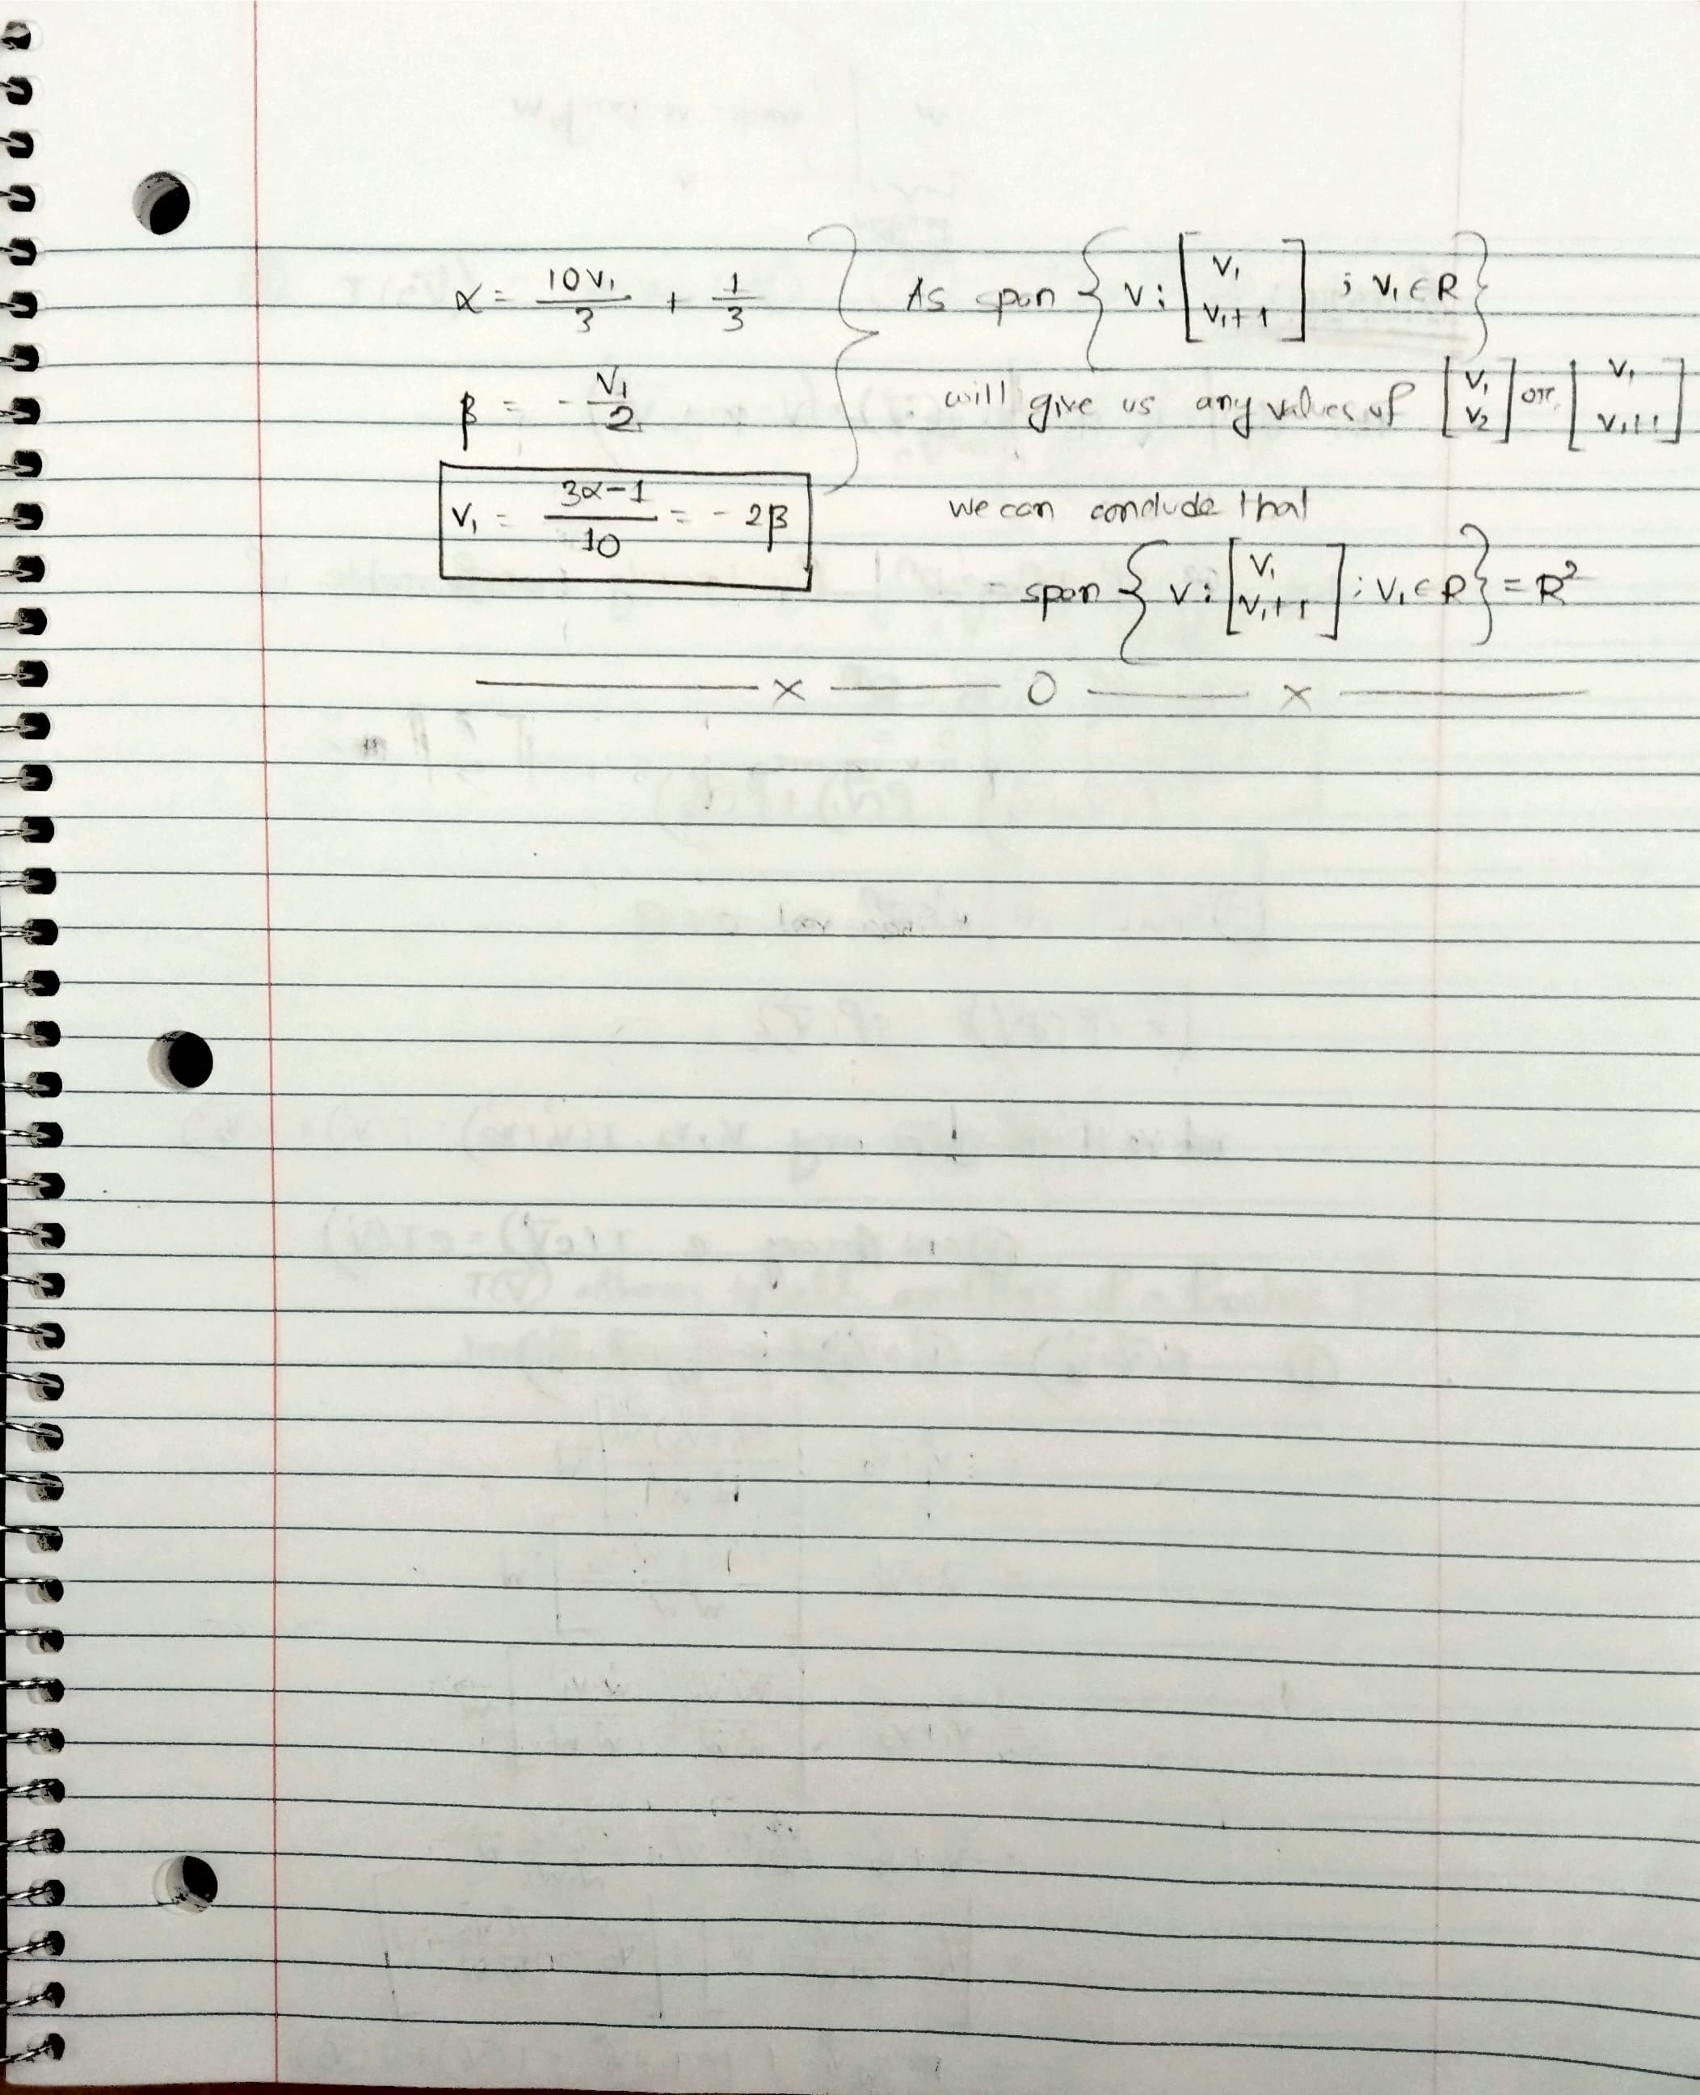 α = 10v₁/3 + 1/3
β = - v₁/2
v₁ = 3α-1/10 = - 2β
As span { v : [ v₁ v₁+1 ] ; v₁ ∈ R }
will give us any values of [ v₁ v₂ ] or [ v₁ v₁+1 ]
we can conclude that
span { v : [ v₁ v₁+1 ] : v₁ ∈ R } = R²
x O x